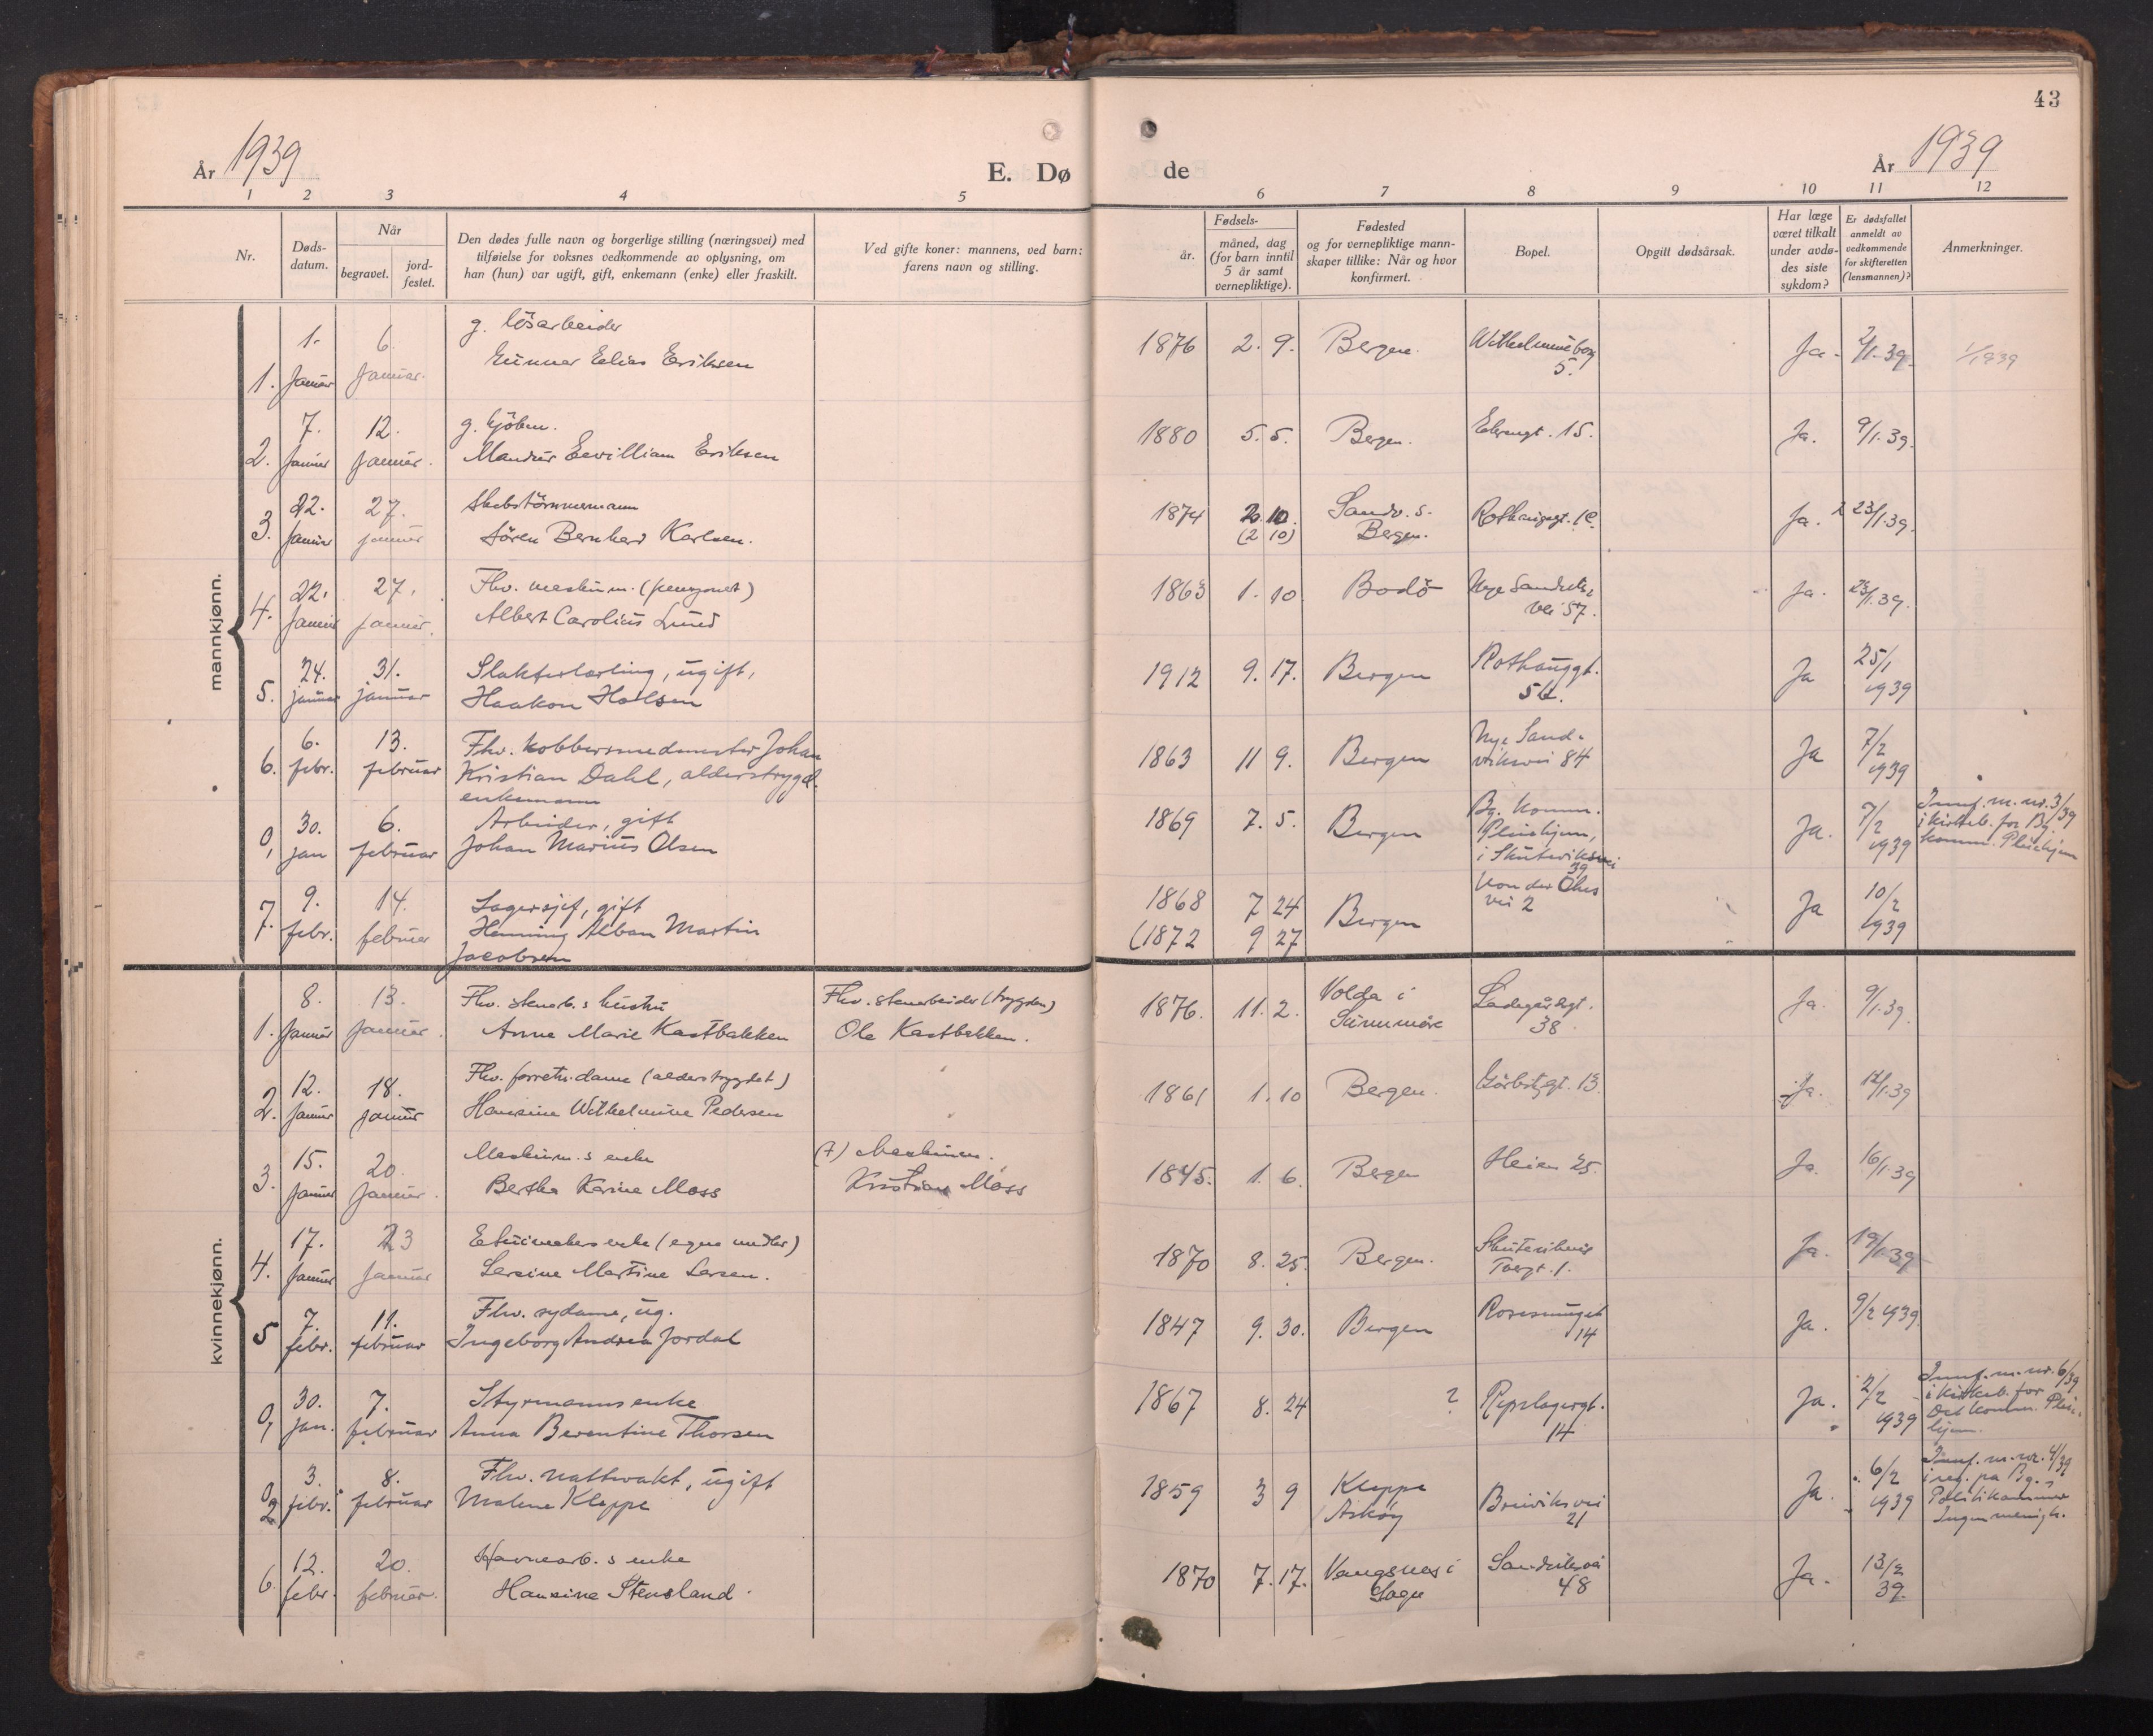 43
År 1939
E. Dø
de
År 1939
1 2 3 4 5
6 7 8 9 10 11 12
Nr.
Døds-
datum.
Når
begravet.
jord-
festet.
Den dødes fulle navn og borgerlige stilling (næringsvei) med
tilføielse for voksnes vedkommende av oplysning, om
han (hun) var ugift, gift, enkemann (enke) eller fraskilt.
Ved gifte koner: mannens, ved barn:
farens navn og stilling.
Fødsels-
år.
måned, dag
(for barn inntil
5 år samt
vernepliktige).
Fødested
og for vernepliktige mann-
skaper tillike: Når og hvor
konfirmert.
Bopel.
Opgitt dødsårsak.
Har læge
været tilkalt
under avdø-
des siste
sykdom?
Er dødsfallet
anmeldt av
vedkommende
for skifteretten
(lensmannen)?
Anmerkninger.
mannkjønn.
1. 1. Januar 6. Januar
g. løsarbeider
Gunnar Elias Eriksen
1876 2. 9. Bergen. Wilhelmineborg
5.
Ja. 2/1-39.
2. 7. Januar 12. januar.
g.
Eriksen
1880 5. 5. Bergen. 15.
Ja. 9/1-39.
3. 22. Januar 27. januar
Skibstömmermann
Sören Bernhard Karlsen.
1874 2. 10.
(2 10)
Sandv. s.
Bergen.
Ja. 23/1-39.
4. 22. Januar 27. januar.
Fhv. maskinm. (pensjonert)
Albert Carolius Lund
1863 1. 10 Bodö Nye Sandviks
vei 57.
Ja. 23/1.39.
5. 24. januar 31. januar
Slakterlærling, ugift,
Haakon Holsen
1912 9. 17. Bergen Rothauggt.
Ja 25/1
1939
6. 6. febr. 13. februar
Fhv. kobbersmedmester Johan
Kristian Dahl, alderstrygd.
enkemann
1863 11 9. Bergen Nye Sand-
viksvei 84
Ja 7/2
1939
0, 30. jan 6. februar
Arbeider, gift
Johan Marius Olsen
1869 7. 5. Bergen Bg. komm.
Pleiehjem,
i Skuteviksvei
39
Ja. 7/2
1939
Innf. m. nr. 3/39
i kirkeb. for Bg.
komm. Pleiehjem
7. 9. febr. 14. februar
Lagersjef, gift
Henning Alban Martin
Jacobsen
1868 7 24
(1872 9 27
Bergen
von der Ohes
vei 2
Ja 10/2
1939
kvinnekjønn.
1. 8. Januar 13. Januar.
Fhv. stenarb.s hustru
Anne Marie Kastbakken
Fhv. stenarbeider (trygden)
Ole Kastbakken.
1876. 11. 2. Volda i
Sunnmöre
Ladegårdsgt.
38.
Ja. 9/1.39.
2. 12. Januar 18. januar
Fhv. forretn.dame (alderstrygdet)
Hansine Wilhelmine Pedersen
1861 1. 10 Bergen. 13.
Ja. 14/1.39
3. 15. Januar 20. Januar.
Maskinm.s enke
Bertha Karine Moss
(†) Maskinm.
Kristian Moss
1845. 1. 6. Bergen Heien 25.
Ja. 16/1-39
4. 17. Januar 23 Januar
Etuimakers enke (egne midler)
Larsine Martine Larsen.
1870 8. 25. Bergen. Skuteviks
Torgt. 1.
Ja. 19/1-39
5 7. febr. 11. februar
Fhv. sydame, ug.
Ingeborg Andrea Jordal
1847 9. 30. Bergen 14
Ja. 9/2 1939.
0, 30. jan. 7. februar
Styrmanns enke
Anna Berentine Thorsen
1867 8. 24 ? Repslagergt.
14
Ja. 2/2
1939
Innf. m. nr. 6/39
i kirkeb. for
Det komm. Pleie-
hjem.
0 2 3. febr. 8. februar
Fhv. nattvakt, ugift
Malene Kleppe
1859 3 9 Kleppe
Askøy
Breiviksvei
21
Ja. 6/2
1939
Innf. m. nr. 4/39
i reg. på Bg.s
Politikammer
Ingen menigh.
6. 12. febr. 20. februar.
Havnearb.s enke
Hansine Stensland.
1870 7. 17. Vangsnes i
Sogn
Sandviksvei
48
Ja. 13/2
39.